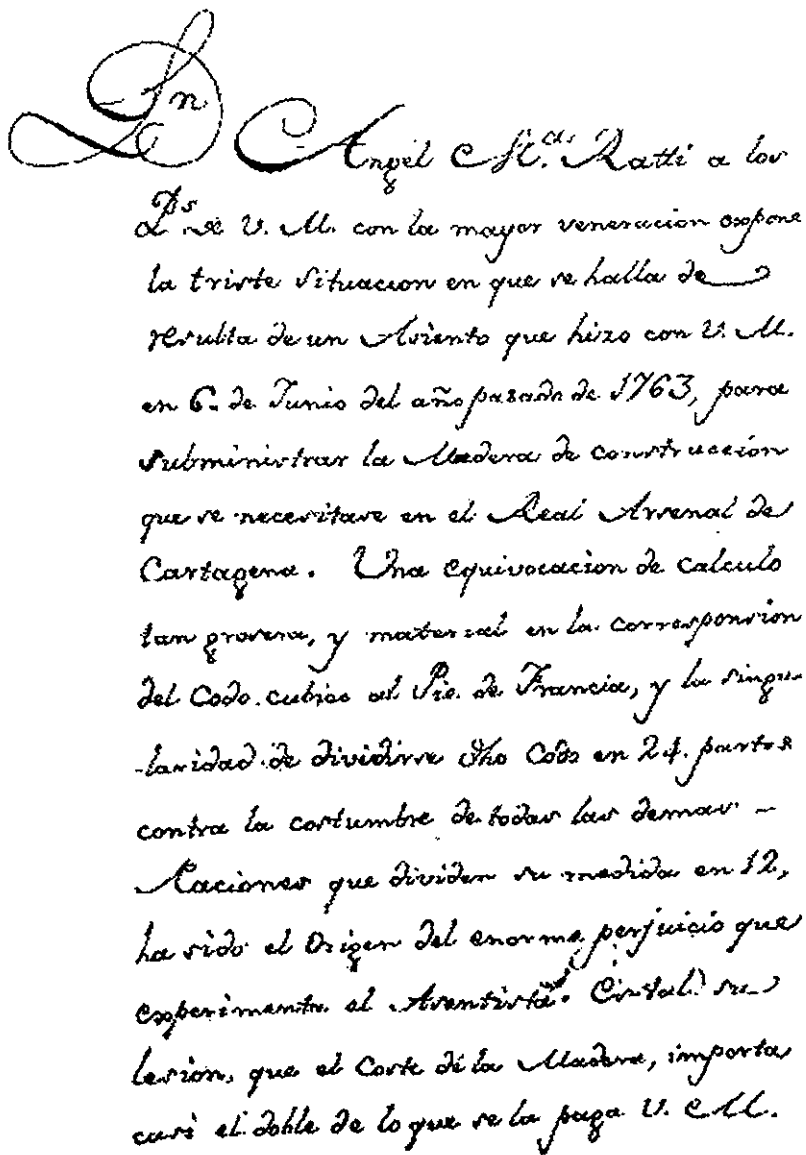 Dn Angel M.cls Ratti a los
Ps. de V. M. con la mayor veneracion expone
la triste situacion en que se halla de
resulta de un Asiento que hizo con V. M.
en 6. de Junio del año pasado de 1763, para
subministrar la Madera de construccion
que se necesitase en el Real Arsenal de
Cartagena. Una equivocacion de calculo
tan grosera, y material en la corresponsion
del Codo cubico al Pie de Francia, y la singu-
-laridad de dividirse dho Codo en 24. partes
contra la costumbre de todas las demas -
Naciones que dividen su medida en 12,
ha sido el Origen del enorme perjuicio que
experimenta el Asentista. Es tal su
lesion, que el Corte de la Madera, importa
casi el doble de lo que se la paga V. M.